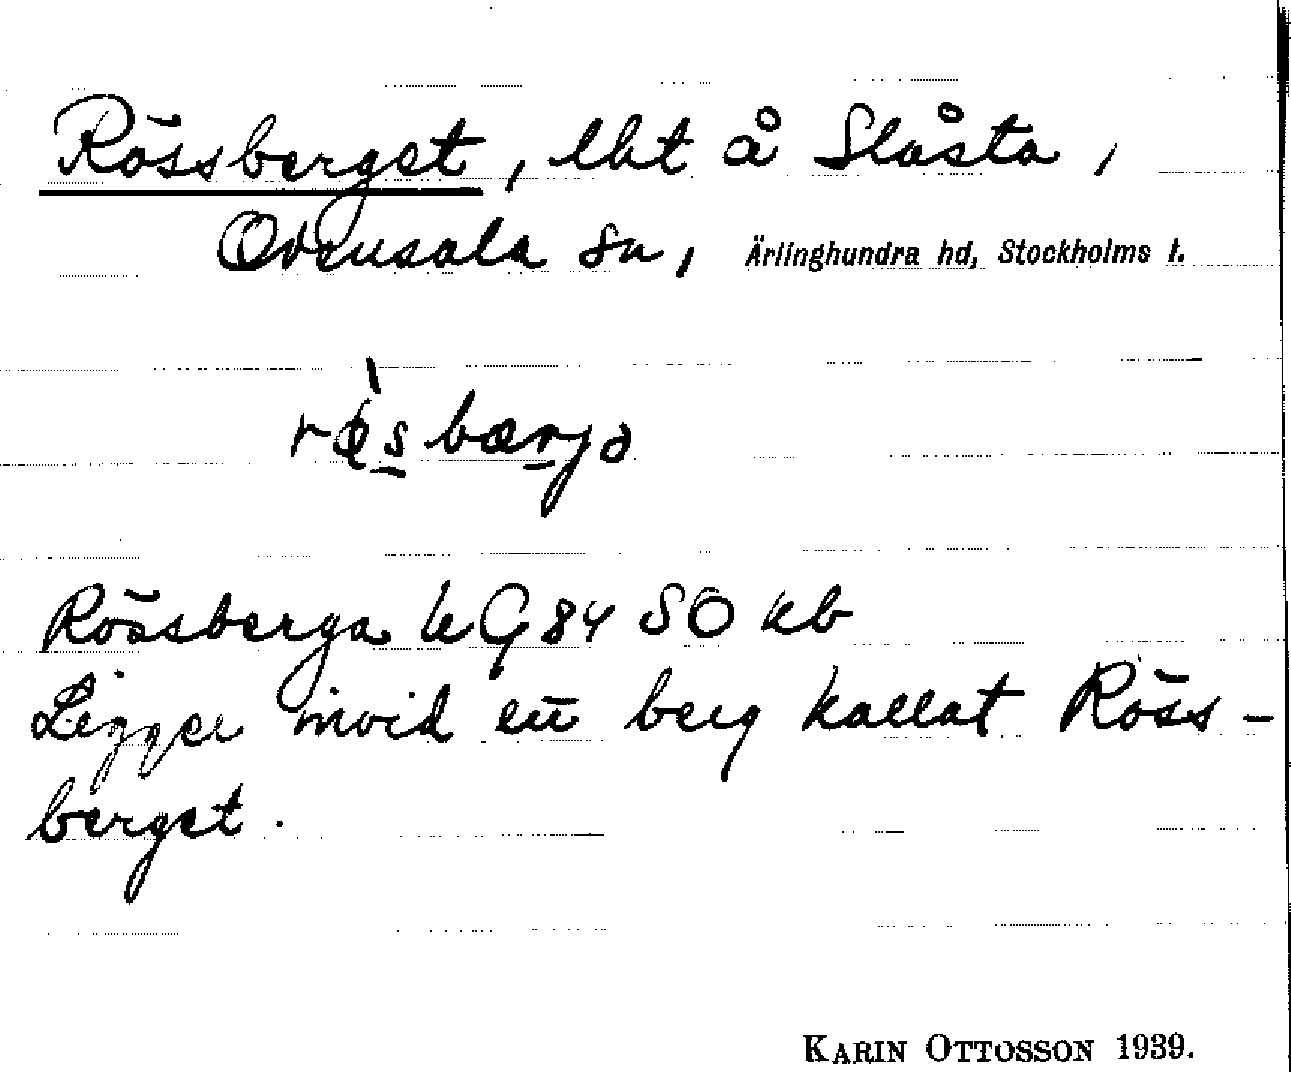 Rössberget, lht å Slåsta,
Odensala sn, Ärlinghundra hd, Stockholms l.
Rössberga G 84 SO kb
Ligger invid ett berg kallat Röss-
berget.
KARIN OTTOSSON 1939.